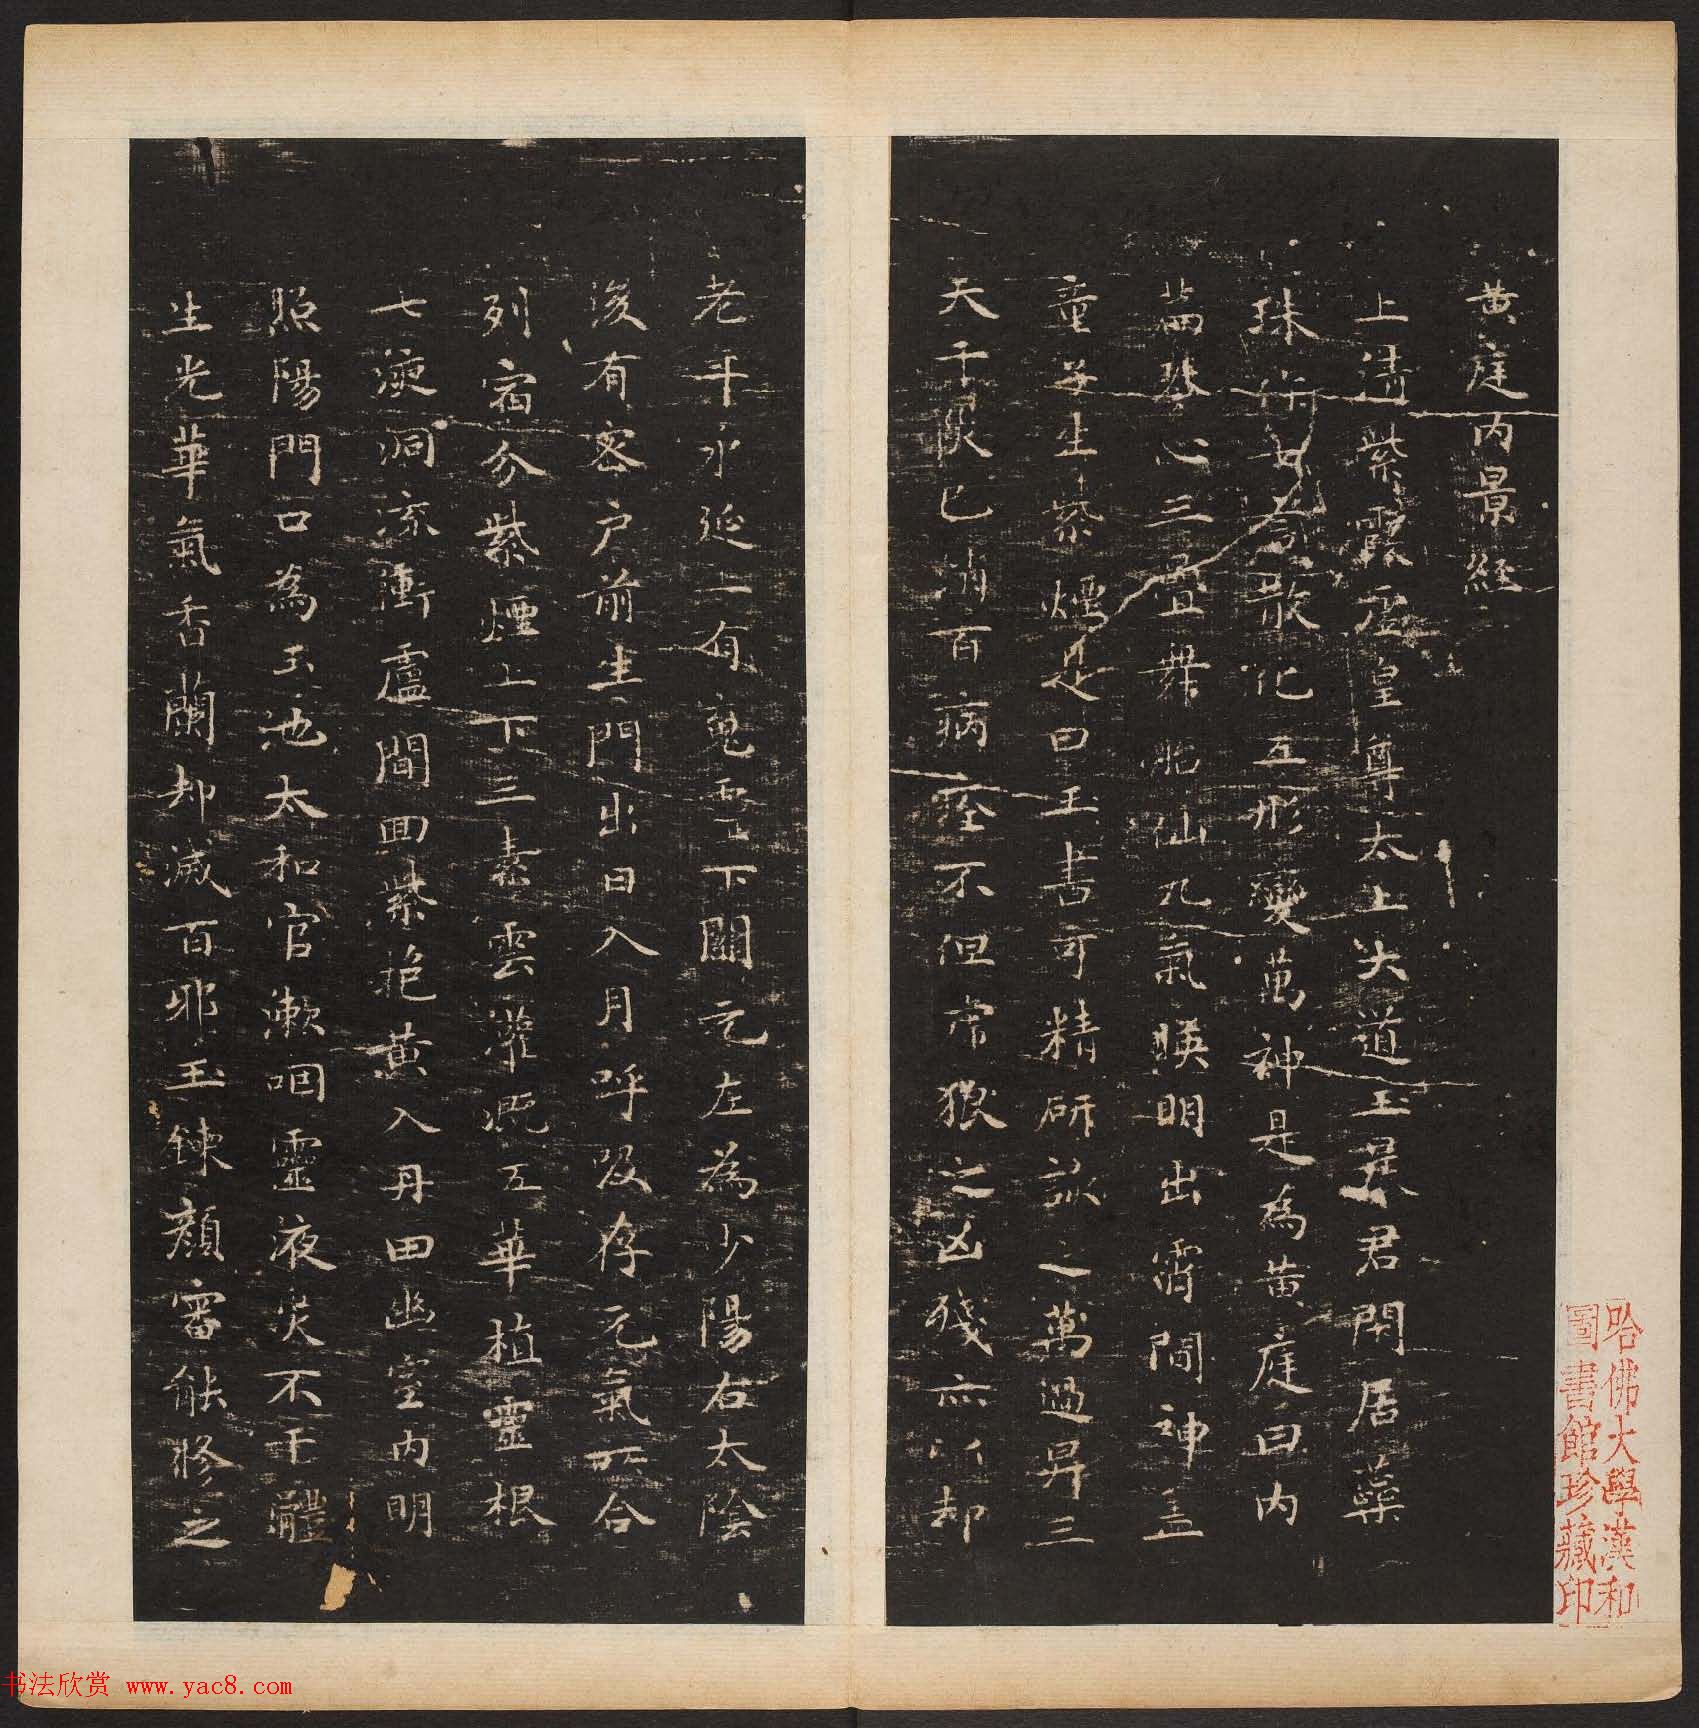 黄庭内景經
上清紫霞虚皇尊太上大道玉晨君閑居蘂
珠作七言散化五形變萬神是為黄庭曰内
篇琴心三疊舞胎仙九氣暎明出霄間神盖
童子生紫煙是曰玉書可精研詠之萬過昇三
天千灾已消百病痊不但狼之凶殘亦以却
老年永延上有魂靈下關元左為少陽右太陰
後有密户前生門出日入月呼吸存元氣所合
列宿分紫煙上下三素雲灌溉五華植靈根
七液洞流衝廬間回紫抱黄入丹田幽室内明
照陽門口為玉池太和官漱咽靈液灾不干體
生光華氣香蘭却滅百邪玉鍊顔審能修之
哈佛大學漢和
圖書館珍藏印
书法欣赏 www.yac8.com